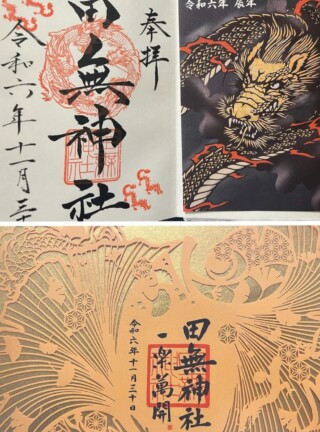 奉拝
田無神社
令和六年十一月三十
令和六年 辰年
田無神社
一 萬開
令和六年十一月三十日